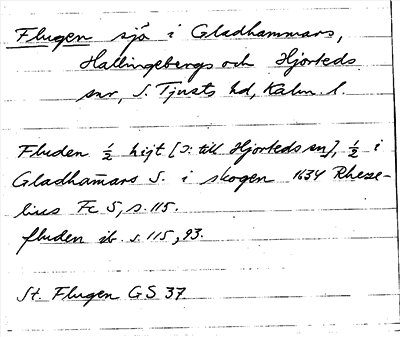 Flugen sjö i Gladhammars,
Hallingebergs och Hjorteds
snr, S. Tjusts hd, Kalm. l.
Fluden ½ hijt [ɔ: till Hjorteds sn], ½ i
Gladham̄ars S. i skogen 1634 Rheze-
lius Fc 5, s. 115.
fluden ib. s. 115, 93.
St. Flugen GS 37